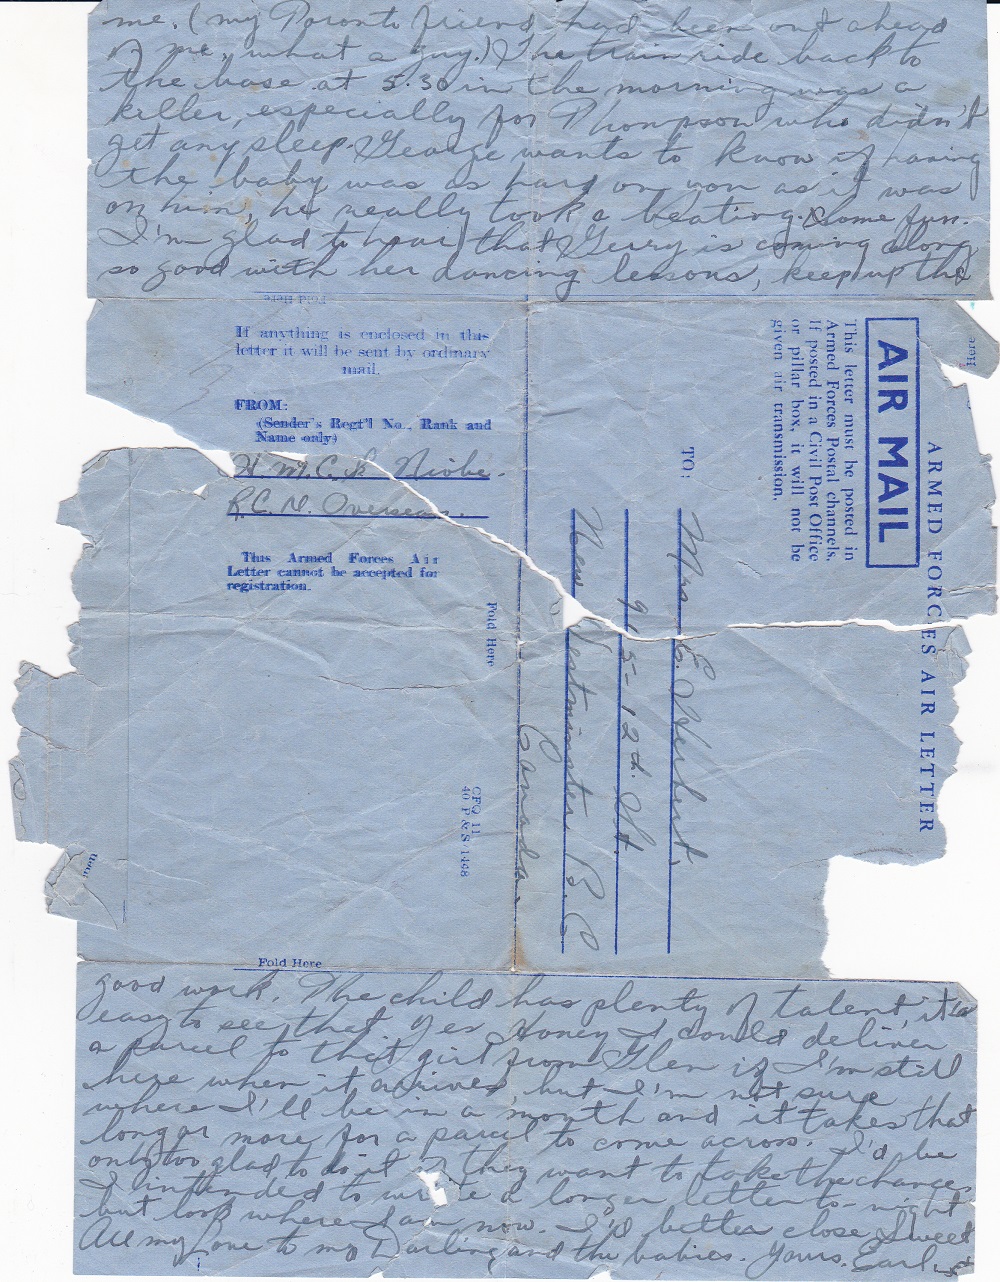 me. (my Toronto friend had been out ahead
of me, what a guy.) The train ride back to
the base at 5.30 in the morning was a
killer, especially for Thompson who didn't
get any sleep. George wants to know if having
the baby was as hard on you as it was
on him, he really took a beating. Some fun.
I'm glad to hear that Gerry is coming along
so good with her dancing lessons, keep up the
Fold Here
If anything is enclosed in this
letter it will be sent by ordinary
mail.
FROM:
(Sender's Regt'l No., Rank and
Name only)
H.M.C.S. Niobe.
R.C.N. Overseas.
This Armed Forces Air
Letter cannot be accepted for
registration.
Fold Here
CFQ 11
40 P & S 1468
ARMED FORCES AIR LETTER
AIR MAIL
This letter must be posted in
Armed Forces Postal channels.
If posted in a Civil Post Office
or pillar box, it will not be
given air transmission.
Here
TO:
Mrs E. Herbert,
915-12th. St.
New Westminster. B.C
Canada.
Fold Here
good work. The child has plenty of talent, it's
easy to see that. Yes Honey I could deliver
a parcel to that girl from Glen if I'm still
here when it arrives but I'm not sure
where I'll be in a month and it takes that
long or more for a parcel to come across. I'd be
only too glad to do it if they want to take the chance.
I intended to write a longer letter to-night
but look where I am now. I'd better close Sweet
All my love to my Darling and the babies. Yours. Earl